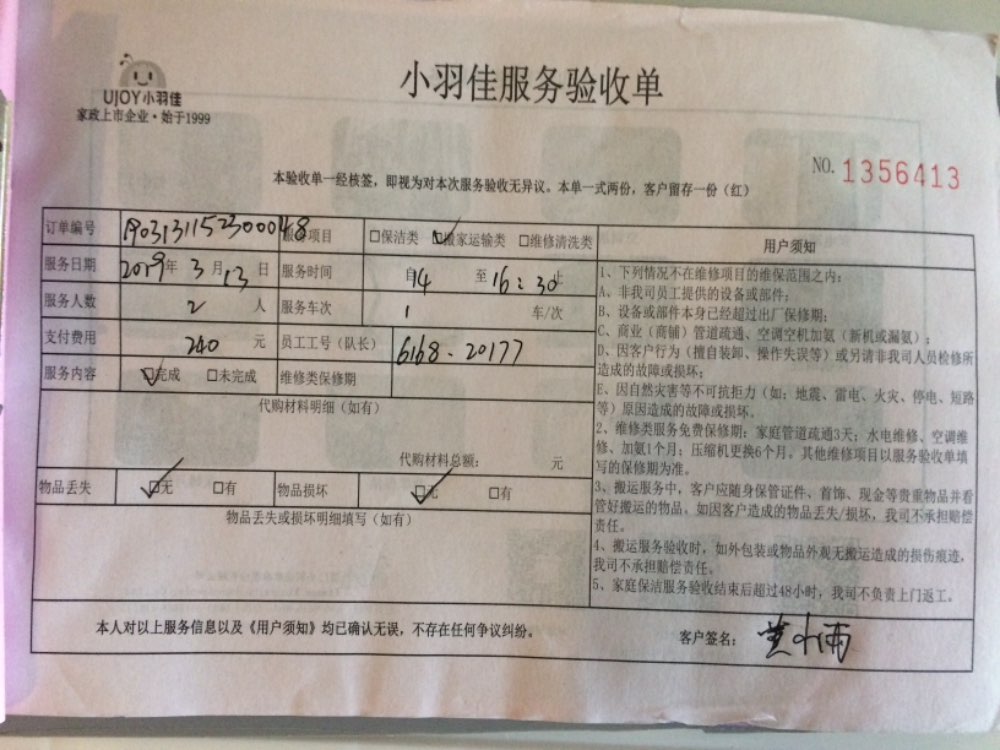 UJOY小羽佳
家政上市企业·始于1999
小羽佳服务验收单
NO. 1356413
本验收单一经核签，即视为对本次服务验收无异议。本单一式两份，客户留存一份（红）
订单编号 服务项目 □保洁类 ☑搬家运输类 □维修清洗类
服务日期 2019年 3月 13日 服务时间 自14 至16:30止
服务人数 2 人 服务车次 1 车/次
支付费用 240 元 员工工号（队长） 6168.20177
服务内容 ☑完成 □未完成 维修类保修期
代购材料明细（如有）
代购材料总额： 元
物品丢失 ☑无 □有 物品损坏 ☑无 □有
物品丢失或损坏明细填写（如有）
用户须知
1、下列情况不在维修项目的维保范围之内：
A、非我司员工提供的设备或部件；
B、设备或部件本身已经超过出厂保修期；
C、商业（商铺）管道疏通、空调空机加氨（新机或漏氨）；
D、因客户行为（擅自装卸、操作失误等）或另请非我司人员检修所
造成的故障或损坏；
E、因自然灾害等不可抗拒力（如：地震、雷电、火灾、停电、短路
等）原因造成的故障或损坏．
2、维修类服务免费保修期：家庭管道疏通3天；水电维修、空调维
修、加氨1个月；压缩机更换6个月。其他维修项目以服务验收单填
写的保修期为准。
3、搬运服务中，客户应随身保管证件、首饰、现金等贵重物品并看
管好搬运的物品。如因客户造成的物品丢失/损坏，我司不承担赔偿
责任。
4、搬运服务验收时，如外包装或物品外观无搬运造成的损伤痕迹，
我司不承担赔偿责任。
5、家庭保洁服务验收结束后超过48小时，我司不负责上门返工。
本人对以上服务信息以及《用户须知》均已确认无误，不存在任何争议纠纷。
客户签名：